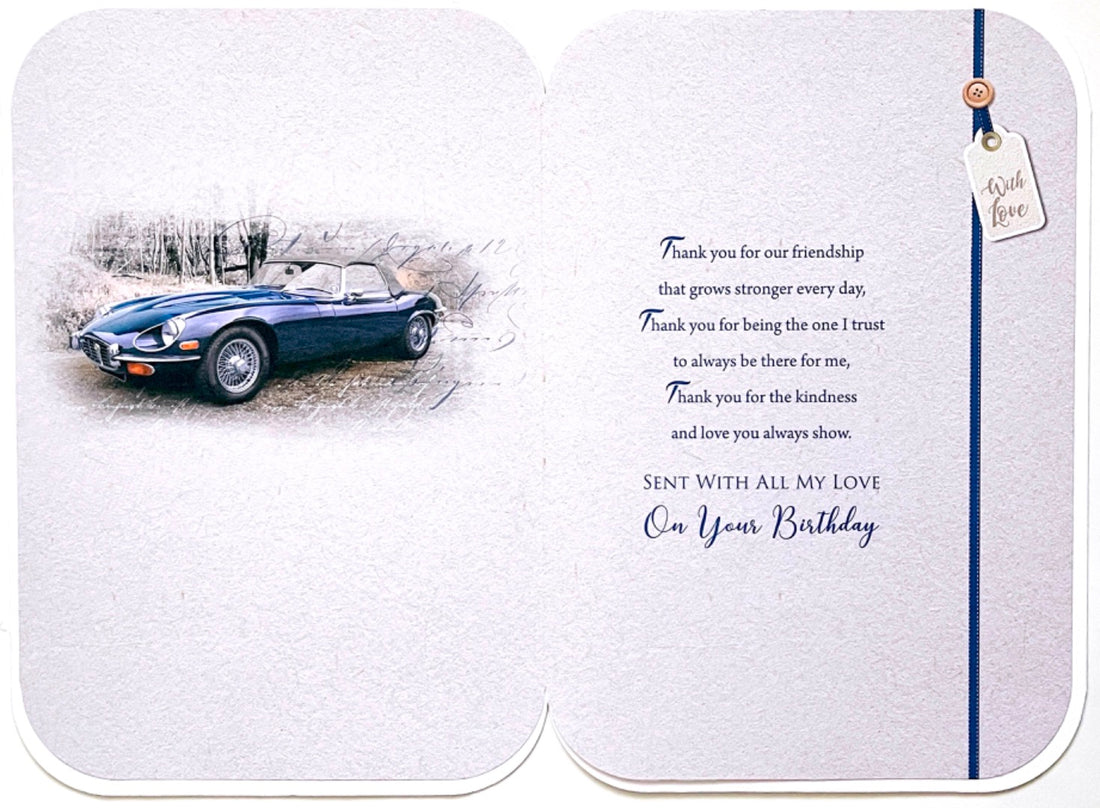 With
Love
Thank you for our friendship
that grows stronger every day,
Thank you for being the one I trust
to always be there for me,
Thank you for the kindness
and love you always show.
SENT WITH ALL MY LOVE
On Your Birthday